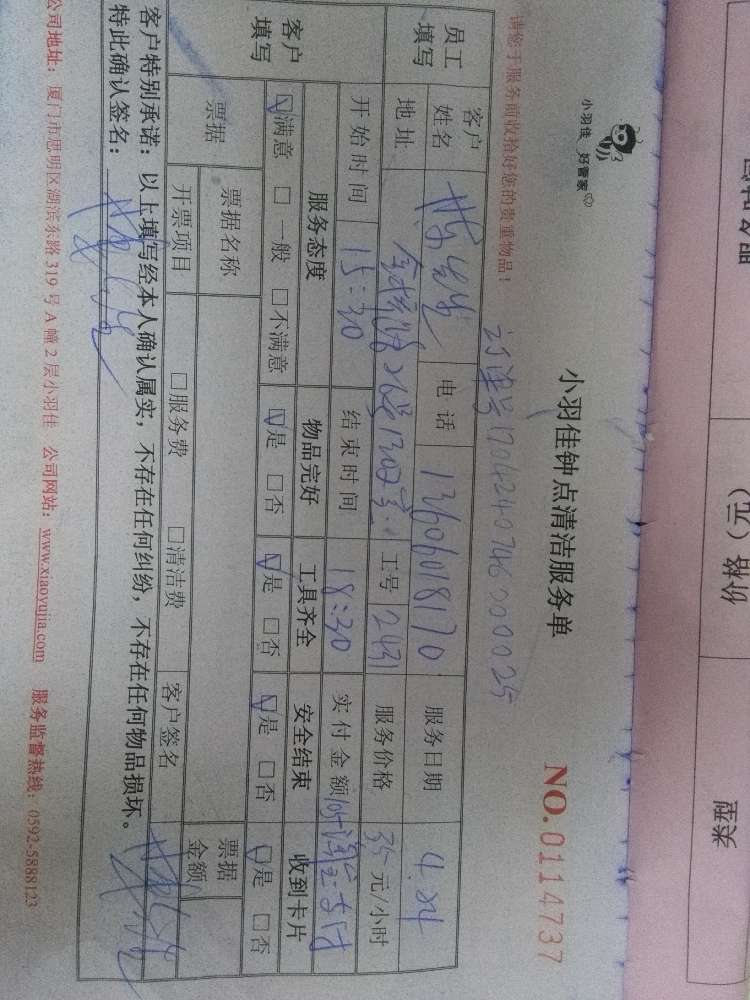 小羽佳 好管家
小羽佳钟点清洁服务单
NO.0114737
请您于服务前收拾好您的贵重物品！
订单号17042407460000025
员工填写
客户姓名 电话 13606018170 服务日期 4.24
地址 26号1302室 工号 2431 服务价格 35 元/小时
客户填写
开始时间 15:30 结束时间 18:30 实付金额 105
服务态度 物品完好 工具齐全 安全结束 收到卡片
☑满意 □一般 □不满意 ☑是 □否 ☑是 □否 ☑是 □否 ☑是 □否
票据 票据名称 客户签名 票据金额
开票项目 □服务费 □清洁费
客户特别承诺：以上填写经本人确认属实，不存在任何纠纷，不存在任何物品损坏。
特此确认签名：
公司地址：厦门市思明区湖滨东路319号A幢2层小羽佳 公司网站：www.xiaoyujia.com 服务监督热线：0592-5888123